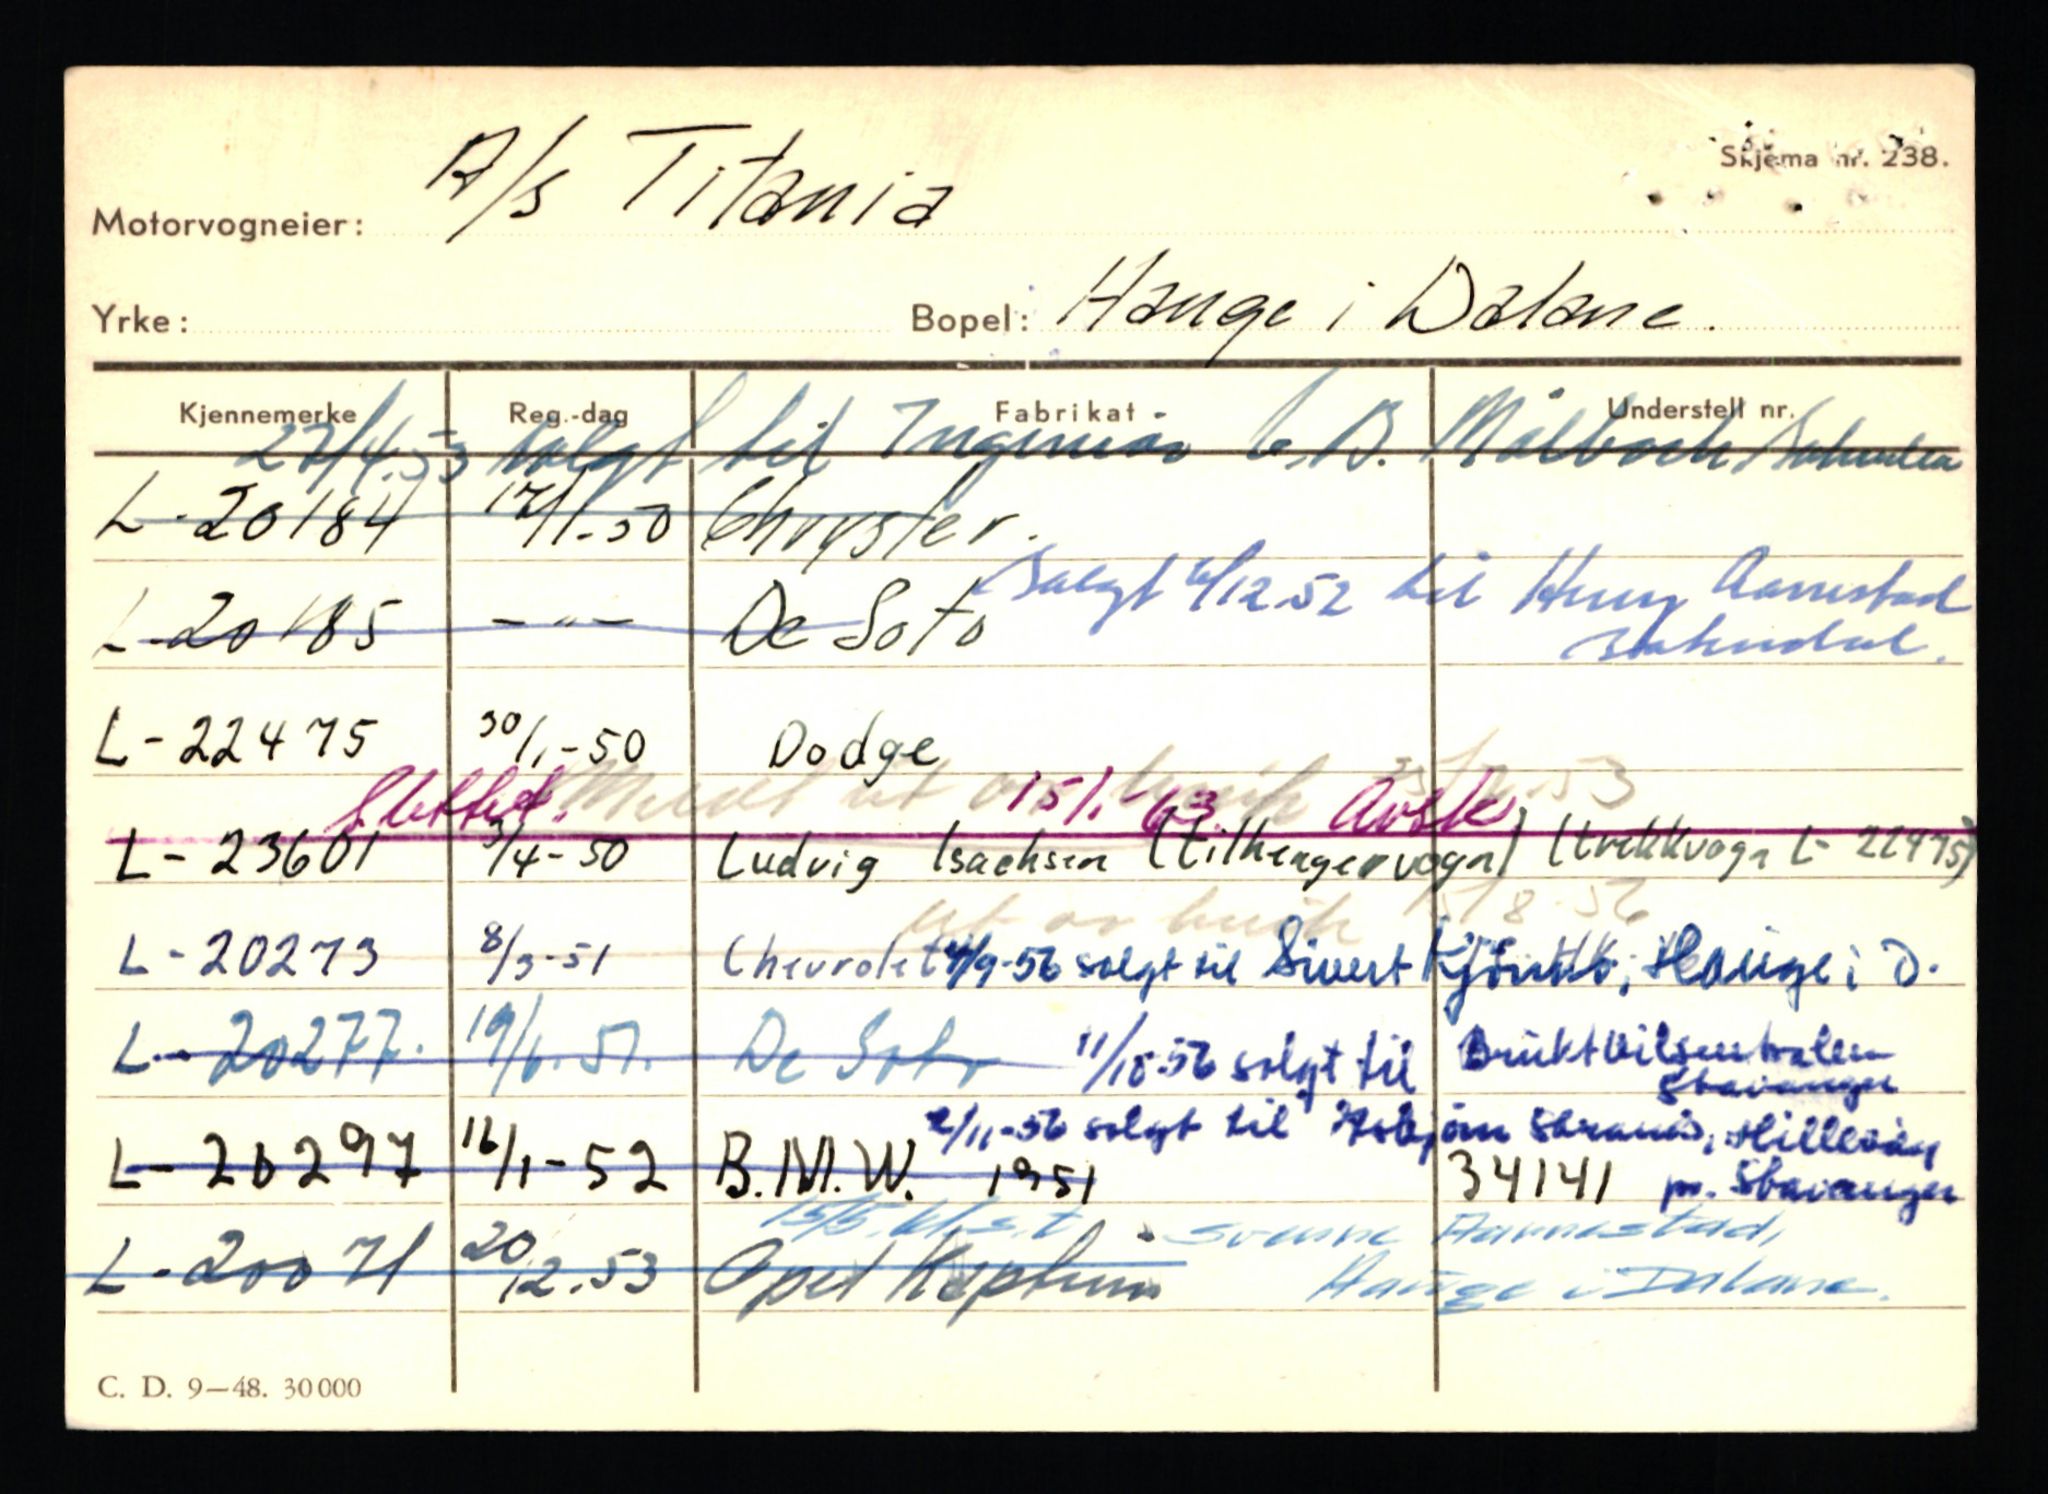 Skjema nr. 238.
Motorvogneier: A/s Titania
Yrke: Bopel: Hauge i Dalane.
Kjennemerke Reg.-dag Fabrikat Understell nr.
27/4.53 solgt til Ingeniør C. B. Målbach, Sokndal
L-20184 17/1-50 Chrysler.
Solgt 6/12 52 til Henry Aamestad
L-20185 -"- De Soto
Sokndal.
L-22475 30/1-50 Dodge
Slettet. Meldt ut av bruk 53
15/1-63 Avsk
L-23601 3/4-50 Ludvig Isachsen (tilhengervogn) (trekkvogn L-22475)
ut av bruk /8-56
L-20273 8/3-51 Chevrolet 4/9-56 solgt til Sivert, Hauge i D.
L-20277. 19/6.51. De Soto 11/10-56 solgt til Bruktbilsentralen
Stavanger
2/11-56 solgt til, Hillevåg
L-20297 16/1-52 B.M.W. 1951 34141 pr. Stavanger
15/5.61 s.t. Svenne Aamestad,
L-20071 20/12.53 Opel Kaptein Hauge i Dalane.
C. D. 9—48. 30000